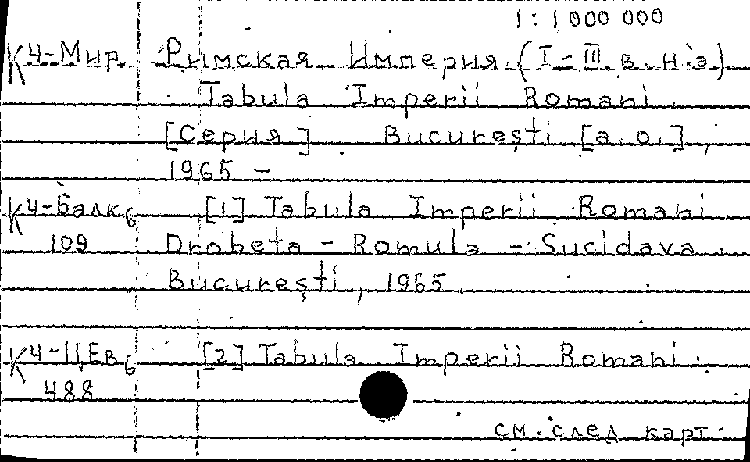 1 : 1 000 000
К4-Мир. Римская Империя. (I-III в. н.э.)
Tabula Imperii Romani.
[Серия]. București [a. o.],
1965 –
К4-Балк6 [1] Tabula Imperii Romani
109 Drobeta – Romula – Sucidava.
București, 1965.
К4-Ц.Ев6 [2] Tabula Imperii Romani.
488
см. след. карт.